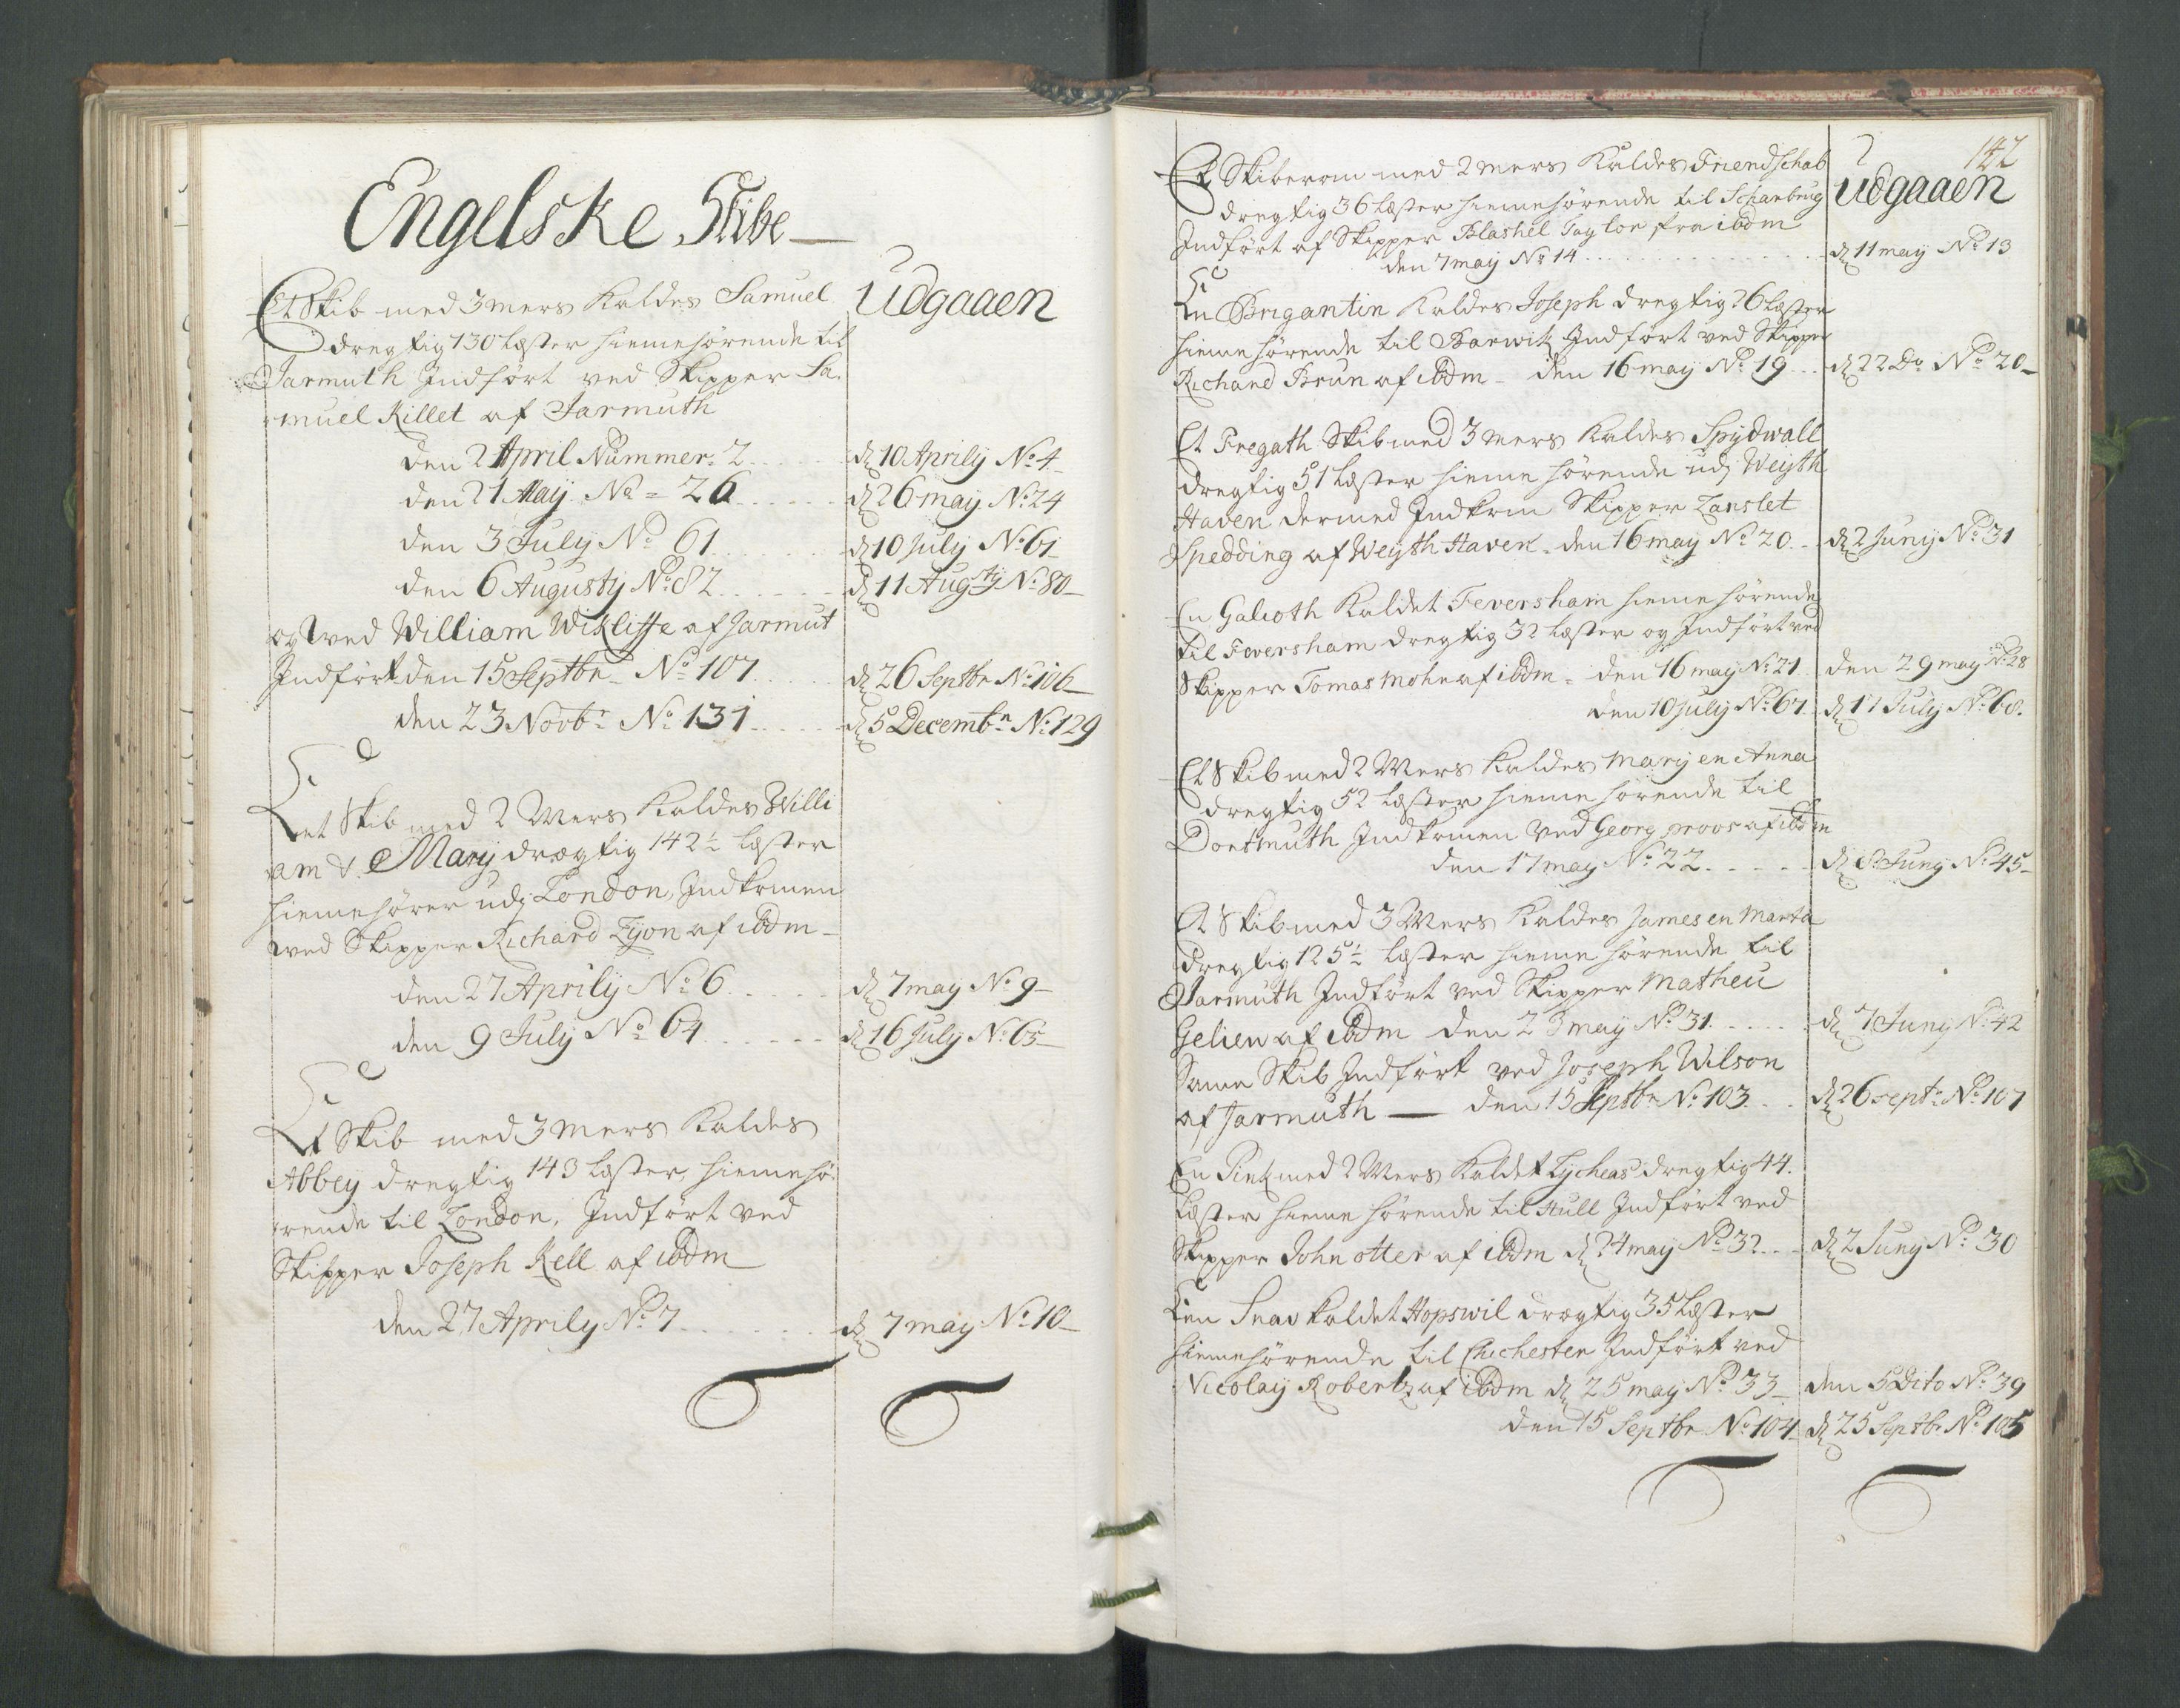 Engelske Skibe
Udgaaen
Et Skib med 3 Mers Kaldes Samuel
dregtig 130 Læster hiemehørende til
Jarmuth Indført ved Skipper Sa¬
muel Killet af Jarmuth
den 2 April Nummer 2 d 10 Aprily No 4
den 21 Maij No = 26 d 26 may No 24
den 3 July No 61 d 10 July No 61
den 6 Augustij No 82 d 11 Augstij No 80
og ved William Wikliffe af Jarmut
Indført den 15 Septbr No 107 d 26 Septbr No 106
den 23 Novbr No 131 d 5 Decembr No 129
Et Skib med 2 Mers Kaldes Willi
am & Mary drægtig 142 1/2 Læster
hiemehører udj London, Indkomen
ved Skipper Richard Lyon af ibdm
den 27 Aprily No 6 d 7 may No 9
den 9 July No 64 d 16 July No 65
Et Skib med 3 Mers Kaldes
Abbey dregtig 143 Læster, hiemehø¬
rende til London, Indført ved
Skipper Joseph Kell af ibdm
den 27 Aprily No 7 d 7 may No 10
142
Udgaaen
Et Skiberom med 2 Mers Kaldes Friendschab
dregtig 36 Læster hiemehørende til Scharbrug
Indført af Skipper Blashel Taylor fra ibdm
den 7 may No 14 d 11 may No 13
En Brigantin Kaldes Joseph dregtig 26 Læster
hiemehørende til Barwik Indført ved Skipper
Richard Brun af ibdm den 16 may No 19 d 22 Do No 20
Et Fregath Skib med 3 Mers Kaldes Spydwall
dregtig 51 Læster hieme hørende udj Weyth
Haven dermed Indkom Skipper Lanslet
Spedding af Weyth Haven den 16 may No 20 d 2 Juny No 31
En Galioth Kaldet Feversham hieme hørende
til Feversham dregtig 32 Læster og Indført ved
Skipper Tomas Mohn af ibdm den 16 may No 21 den 29 may No 28
den 10 July No 67 d 17 July No 68
Et Skib med 2 Mers Kaldes Mary en Anna
dregtig 52 Læster hieme hørende til
Dortmuth Indkomen ved Georg proos af ibdm
den 17 may No 22 d 8 Juny No 45
Et Skib med 3 Mers Kaldes James en Marta
dregtig 125 1/2 Læster hieme hørende til
Jarmuth Indført ved Skipper Matheu
Gelien af ibdm den 23 may No 31 d 7 Juny No 42
Same Skib Indført ved Joseph Wilson
af Jarmuth — den 15 Septbr No 103 d 26 septr No 107
En Pink med 2 Mers Kaldet Lycheas dregtig 44
Læster hieme hørende til Hull Indført ved
Skipper John otter af ibdm d 24 may No 32 d 2 Juny No 30
En Snav Kaldet Hopswil drægtig 35 Læster
hiemehørende til Chichester Indført ved
Nicolay Robertz af ibdm d 25 may No 33 den 5 Dito No 39
den 15 Septbr No 104 d 25 Septbr No 105